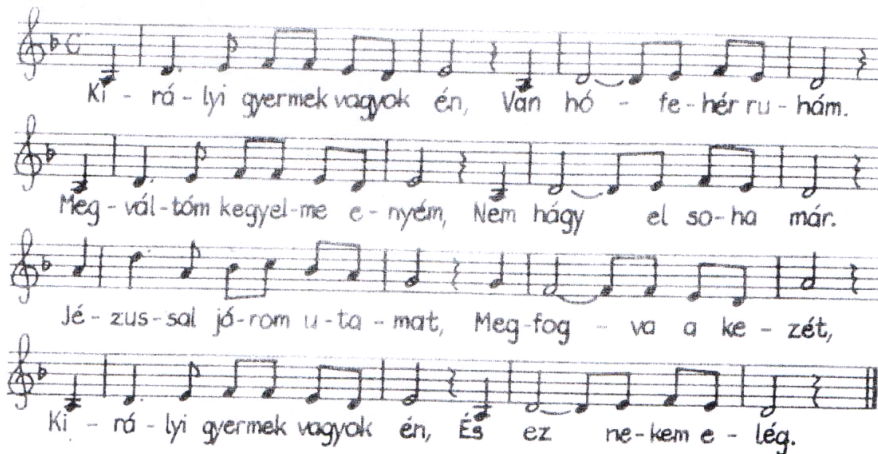 Ki - rá - lyi gyermek vagyok én, Van hó - fe - hér ru - hám.
Meg - vál - tóm kegyel - me e - nyém, Nem hágy el so - ha már.
Jé - zus - sal já - rom u - ta - mat, Meg - fog - va a ke - zét,
Ki - rá - lyi gyermek vagyok én, És ez ne - kem e - lég.